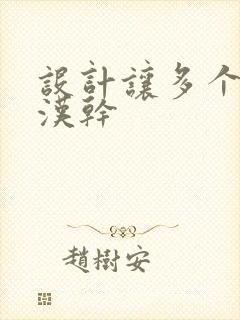 設計讓多个
漢幹
趙樹安